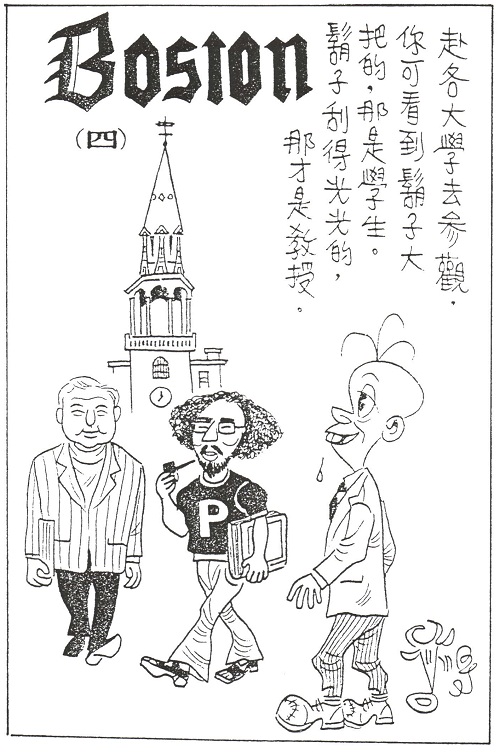 Boston
(四)
赴各大學去參觀，
你可看到鬍子大
把的，那是學生。
鬍子刮得光光的，
那才是教授。
P